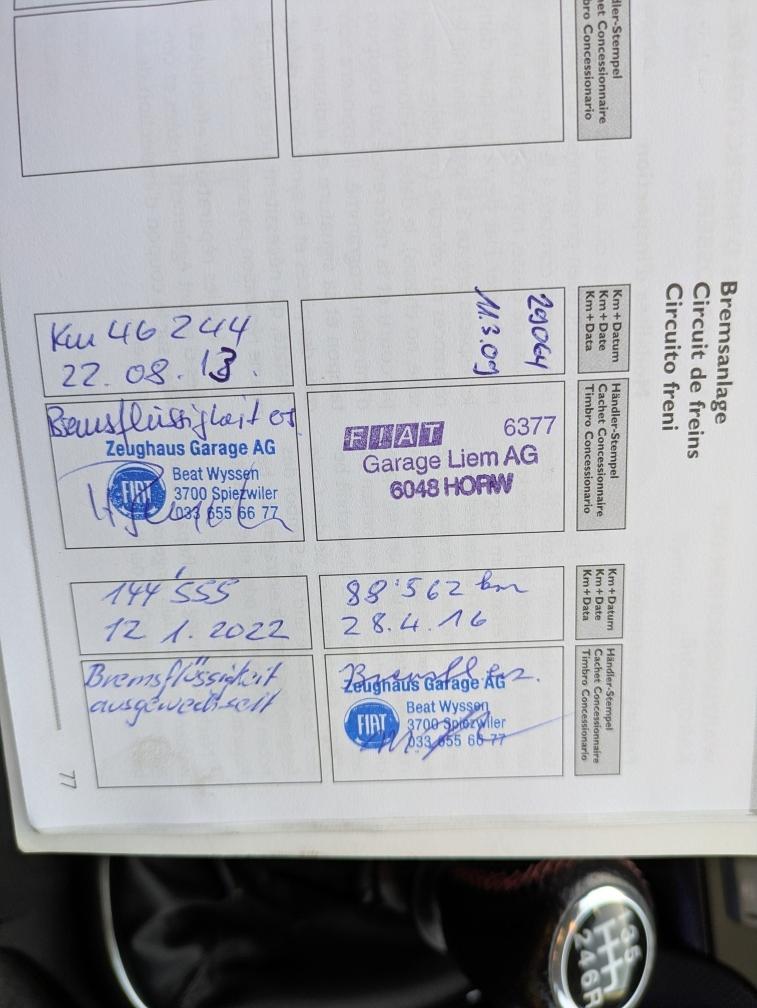 Bremsanlage
Circuit de freins
Circuito freni
Händler-Stempel
Cachet Concessionnaire
Timbro Concessionario
Km+Datum
Km+Date
Km+Data
29064
11.3.09
Händler-Stempel
Cachet Concessionnaire
Timbro Concessionario
FIAT 6377
Garage Liem AG
6048 HORW
Km 46 244
22.08.13.
Bremsflüssigkeit
Zeughaus Garage AG
FIAT
Beat Wyssen
3700 Spiezwiler
033 655 66 77
Km+Datum
Km+Date
Km+Data
88'562 km
28.4.16
Händler-Stempel
Cachet Concessionnaire
Timbro Concessionario
Zeughaus Garage AG
FIAT
Beat Wyssen
3700 Spiezwiler
033 655 66 77
144'555
12 1. 2022
Bremsflüssigkeit
ausgewechselt
77
1 3 5
2 4 6 R